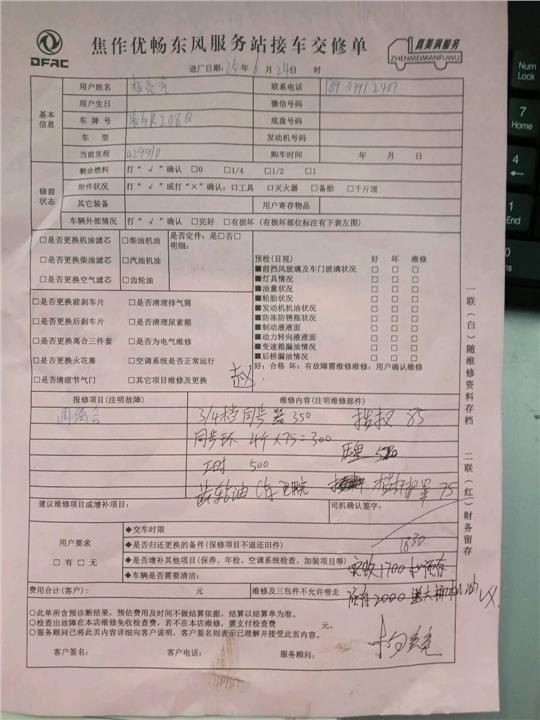 DFAC
焦作优畅东风服务站接车交修单
真美满服务
ZHENMEIMANFUWU
进厂日期：25年6月24日 时
基本信息
用户姓名
联系电话
用户生日 微信号码
车牌号 208Q 底盘号码
车型 发动机号码
当前里程 购车时间 年 月 日
修前状态
剩余燃料 打“√”确认 □0 □1/4 □1/2 □1
附件状况 打“√”或打“×”确认：□工具 □灭火器 □备胎 □千斤顶
其它装备 用户寄存物品
车辆外部情况 打“√”确认 □完好 □有损坏（有损坏部位标注有下表左图）
□是否更换机油滤芯 □柴油机油
□是否更换柴油滤芯 □汽油机油
□是否更换空气滤芯 □齿轮油
是否定件：是□否□
明细：
□是否更换前刹车片 □是否清理排气筒
□是否更换后刹车片 □是否清理尿素箱
□是否更换离合三件套 □是否为电气维修
□是否更换火花塞 □空调系统是否正常运行
□是否清理节气门 □其它项目维修及更换
赵
预检（目视） 好 坏 维修
■前挡风玻璃及车门玻璃状况 □ □ □
■灯具情况 □ □ □
■油量状况 □ □ □
■轮胎状况 □ □ □
■发动机机油状况 □ □ □
■防冻防锈瓶状况 □ □ □
■制动液液面 □ □ □
■动力转向液液面 □ □ □
■变速箱漏油情况 □ □ □
■后桥漏油情况 □ □ □
好：合格 坏：有故障需维修维修：用户确认维修
报修项目（注明故障） 维修内容（注明维修部件）
3/4档同步器 350 拨叉 85
同步环 4个×75=300
工时 500
齿轮油
75
建议维修项目或增补项目： 司机确认签字：
用户要求
□有 □无
◆交车时限
1830
◆是否归还更换的备件（保修项目不退还旧件）
◆是否增补其他项目（保养、年检、空调系统检查、加装项目等）
◆车辆是否需要清洁：
实收1700
2000
费用合计（客户）： 元 维修及三包件不允许带走
○此单所含预诊断结果，预估费用及时间不做结算依据，结算以结算单为准。
○检查出故障在本店维修免收检查费，若不在本店维修，需支付检查费 元。
○服务顾问已将此页内容详细向客户说明，客户签名则表示已理解并接受此页内容。
客户签名： 客户电话： 服务顾问：
一联（白）随维修资料存档
二联（红）财务留存
Num
Lock
7
Home
4
1
End